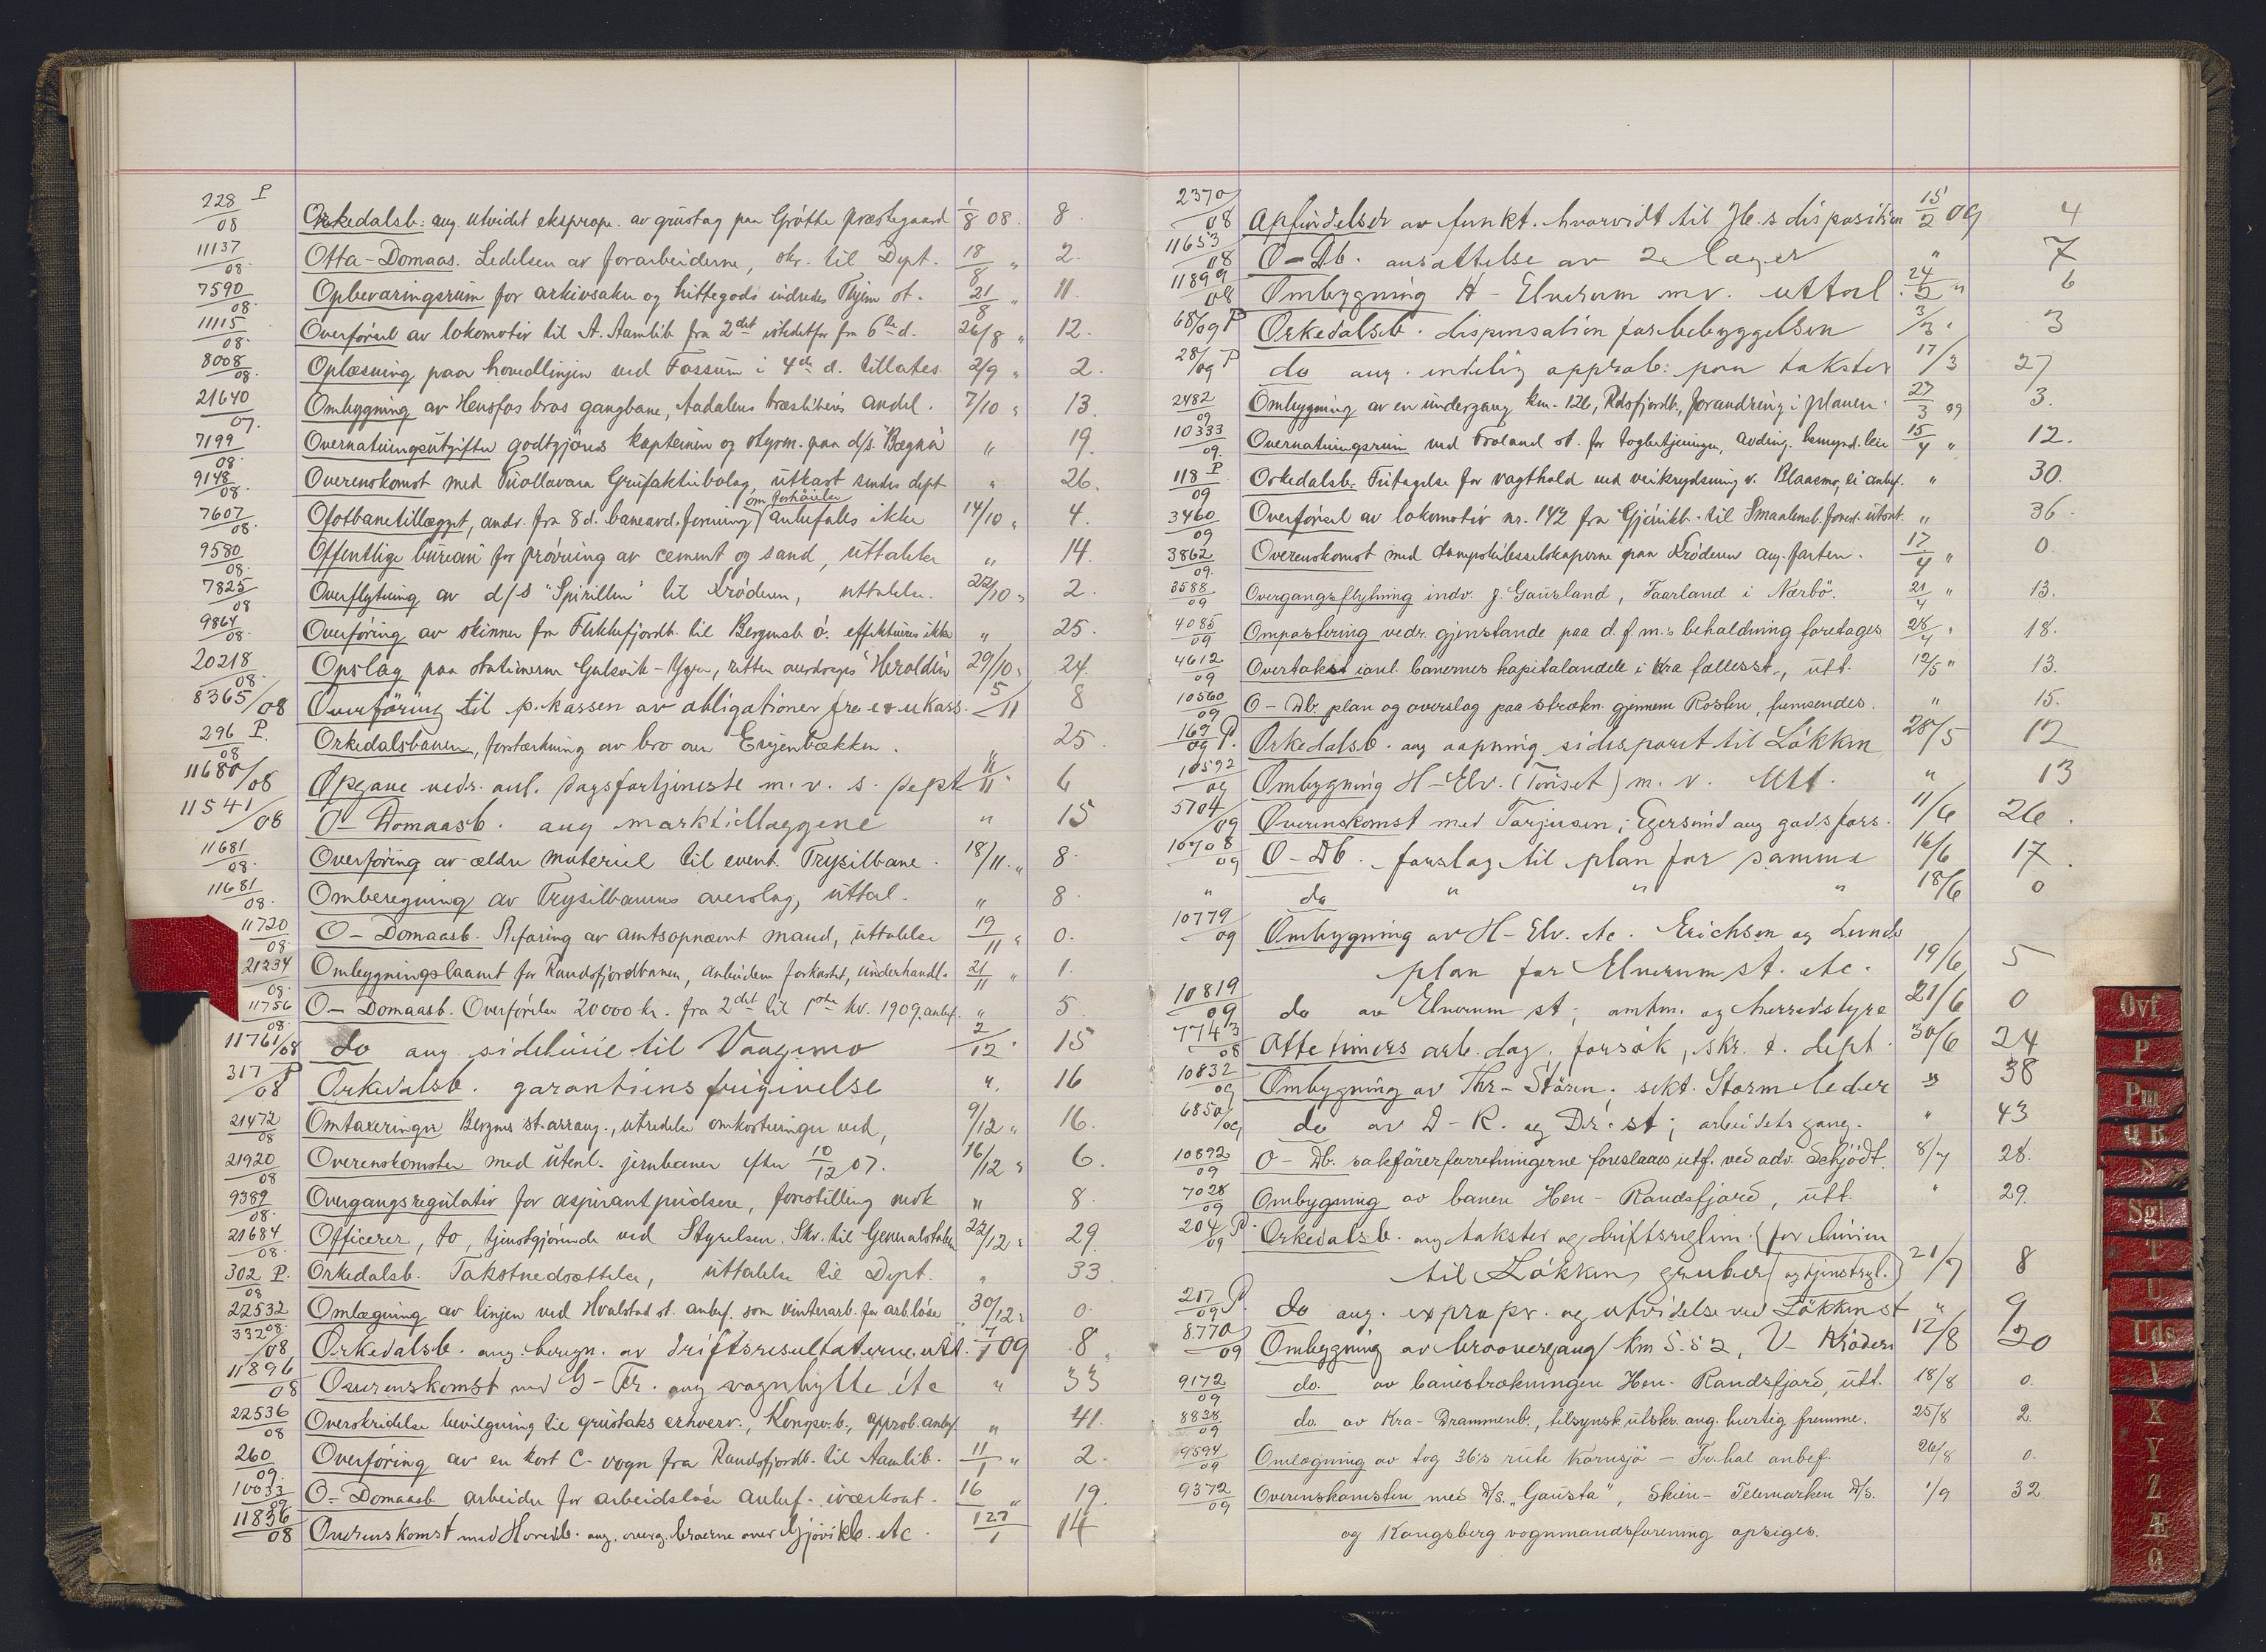 228 P/08 Orkedalsb: ang. utvidet eksprop. av grustag paa Grøtte præstegaard 1/8 08. 8.
11137/08. Otta-Domaas. Ledelsen av forarbeiderne, skr. til Dept. 18/8 " 2.
7590/08. Opbevaringsrum for arkivsaker og hittegods indredes Thjem st. 21/8 " 11.
11115/08. Overførsel av lokomotiv til A. Aamlib. fra 2det distr. fra 6te d. 26/8 " 12.
8008/08. Oplæsning paa hovedlinjen ved Fossum i 4de d. tillates 2/9 " 2.
21640/07. Ombygning av Hensfos bros gangbane, Aadalens træsliberis andel. 7/10 " 13.
7199/08. Overnatningsutgifter godtgjøres kapteinen og styrm. paa d/s. "Bægna" " 19.
9148/08. Overenskomst med Tuollavara Grufaktiebolag, utkast sendes dept " 26.
7607/08. Ofotbanetillægget, andr. fra 8 d. baneavd. forening om forhøielse anbefales ikke 14/10 " 4.
9580/08. Offentlige bureau for prøvning av cement og sand, uttalelse " 14.
7825/08 Overflytning av d/s "Spirillen" til Krøderen, uttalelse. 22/10 " 2.
9864/08. Overføring av skinner fra Tukkefjordb. til Bergensb. ø. effektueres ikke " 25.
20218/08. Opslag paa stationerne Gulsvik - Ygre, retten overdrages "Heroldin" 29/10 " 24.
8365/08 Overføring til p. kassen av obligationer fra e & ukass. 5/11 8
296 P./08 Orkedalsbanen, forstærkning av bro over Evjenbækken. " 25.
11680/08 Opgave vedr. anl. dagsfortjeneste m. v. s. dept 11/11 " 6
11541/08 O - Domaasb. ang marktillæggene " 15
11681/08. Overføring av ældre materiel til event. Trysilbane. 18/11. " 8.
11681/08. Omberegning av Trysilbanens overslag, uttal. " 8.
11720/08. O - Domaasb. Befaring av amtsopnævnt mand, uttalelse 19/11 " 0.
21234/08. Ombygningslaant for Randsfjordbanen, anbudene forkastet, underhandl. 21/11 " 1.
11756/08. O - Domaasb. Overførelse 20000 kr. fra 2det til 1ste hv. 1909, anbef. " 5.
11761/08 do ang. sidelinie til Vaagemo 2/12 " 15
317 P/08 Orkedalsb. garantiens frigivelse " 16
21472/08 Omtaxeringer Bergens st. arrang., utredelse omkostninger ved, 9/12 " 16.
21920/08 Overenskomster med utenl. jernbaner efter 10/12 07. 16/12 " 6.
9389/08. Overgangsregulativ for aspirantpudsere, forestilling " 8.
21684/08. Officerer, to, tjenstgjørende ved Styrelsen. Skr. til Generalstaben 22/12 " 29
302 P./08 Orkedalsb. Takstnedsættelse, uttalelse til Dept. " 33
22532/08 Omlægning av linjen ved Hvalstad st. anbef. som vinterarb. for arb.løse 30/12 " 0.
332/08 Orkedalsb. ang. beregn. av driftsresultaterne. utt. 7/1 09 8.
11896/08 Overenskomst med G - Tr. ang vognhytte etc " 33
22536/08 Overskridelse bevilgning til grustaks erhverv., Kongsv.b., approb. anbef. " 41.
260/09. Overføring av en kort C-vogn fra Randsfjordb. til Aamlib. 11/1 " 2.
10033/09 O - Domaasb arbeider for arbeidsløse anbef. iværksat. 16 " 19.
11836/08 Overenskomst med Hovedb. ang. overg. broerne over Gjøvikb. etc. 127/1 14
2370/08 Opfindelser av funkt. hvorvidt til Jb.s disposition 15/2 09 4
11653/08 O - Db. ansættelse av 2 læger " 7
11899/08 Ombygning H - Elverum mv. uttal. 24/2 " 6
68/09 P Orkedalsb. dispensation for bebyggelsen 3/3. 3
28/09 P do ang. endelig approb: paa takster 17/3 27
2482/09 Ombygning av en undergang km. 126, Rdsfjordb., forandring i planen. 27/3 09 3.
10333/09. Overnatningsrum ved Froland st. for togbetjeningen, avding. bemynd. leie 15/4 " 12.
118 P/09 Orkedalsb. Fritagelse for vagthold ved veikrydsning v. Blaasmo, ei anbef. " 30.
3460/09 Overførsel av lokomotiv nr. 142 fra Gjøvikb. til Smaalensb. forest. utsat. " 36.
3862/09. Overenskomst med dampskibsselskaperne paa Krøderen ang. farten. 17/4 " 0.
3588/09 Overgangsflytning indv. J. Gausland, Taarland i Nærbø. 21/4 " 13.
4085/09 Ompostering vedr. gjenstande paa d. f. m.s beholdning foretages 28/4 " 18.
4612/09 Overtakst ianl. banernes kapitalandele i Kra fællesst., utt. 12/5 " 13.
10560/09 O - Db. plan og overslag paa strækn. gjennem Rosten, fremsendes. " 15.
169 P./09 Orkedalsb. ang aapning sidesporet til Løkken 28/5 12
10592/09 Ombygning H - Elv. (Tønset) m. v. Utt. " 13
5704/09 Overenskomst med Torjusen, Egersund ang godsfors. 11/6 26.
10708/09 O - Db. forslag til plan for samme 16/6 17.
" do " " " 18/6 0
10779/09 Ombygning av H - Elv. etc. Erichsen og Lunds
plan for Elverum st. etc. 19/6 5
10819/09 do av Elverum st; amtm. og herredstyre 21/6 0
7743/08 Otte timers arb. dag. forsøk, skr. t. dept. 30/6 24
10832/09 Ombygning av Thr - Støren. sekt. Storm leder " 38
6850/09 do av D - K. og Dr. st; arbeidets gang. " 43
10892/09 O - Db. sakførerforretningerne foreslaaes utf. ved adv. Schjødt. 8/7 28.
7028/09 Ombygning av banen Hen - Randsfjord, utt. " 29.
204 P./09 Orkedalsb. ang takster og driftsreglem. (for linien
til Løkkens gruber (og tjenstregl.) 21/7 8
207 P./09 do ang. expropr. og utvidelse ved Løkken st " 9
8770/09 Ombygning av broovergang km 5.52, V - Krøderen 12/8 20
9172/09 do. av banestrækningen Hen - Randsfjord, utt. 18/8 0.
8838/09 do. av Kra - Drammenb., tilsynsk. utskr. ang. hurtig fremme. 25/8 2.
9594/09 Omlægning av tog 36's rute Kornsjø - Fr.hal anbef. 26/8 0.
9372/09 Overenskomsten med D/S. "Gausta", Skien - Telemarken D/S. 1/9 32
og Kongsberg vognmandsforening opsiges.
Ovf
P
Pm
Q R
S
Sgl
T
U
Uds
V
X
Y
Z
Æ
Ø